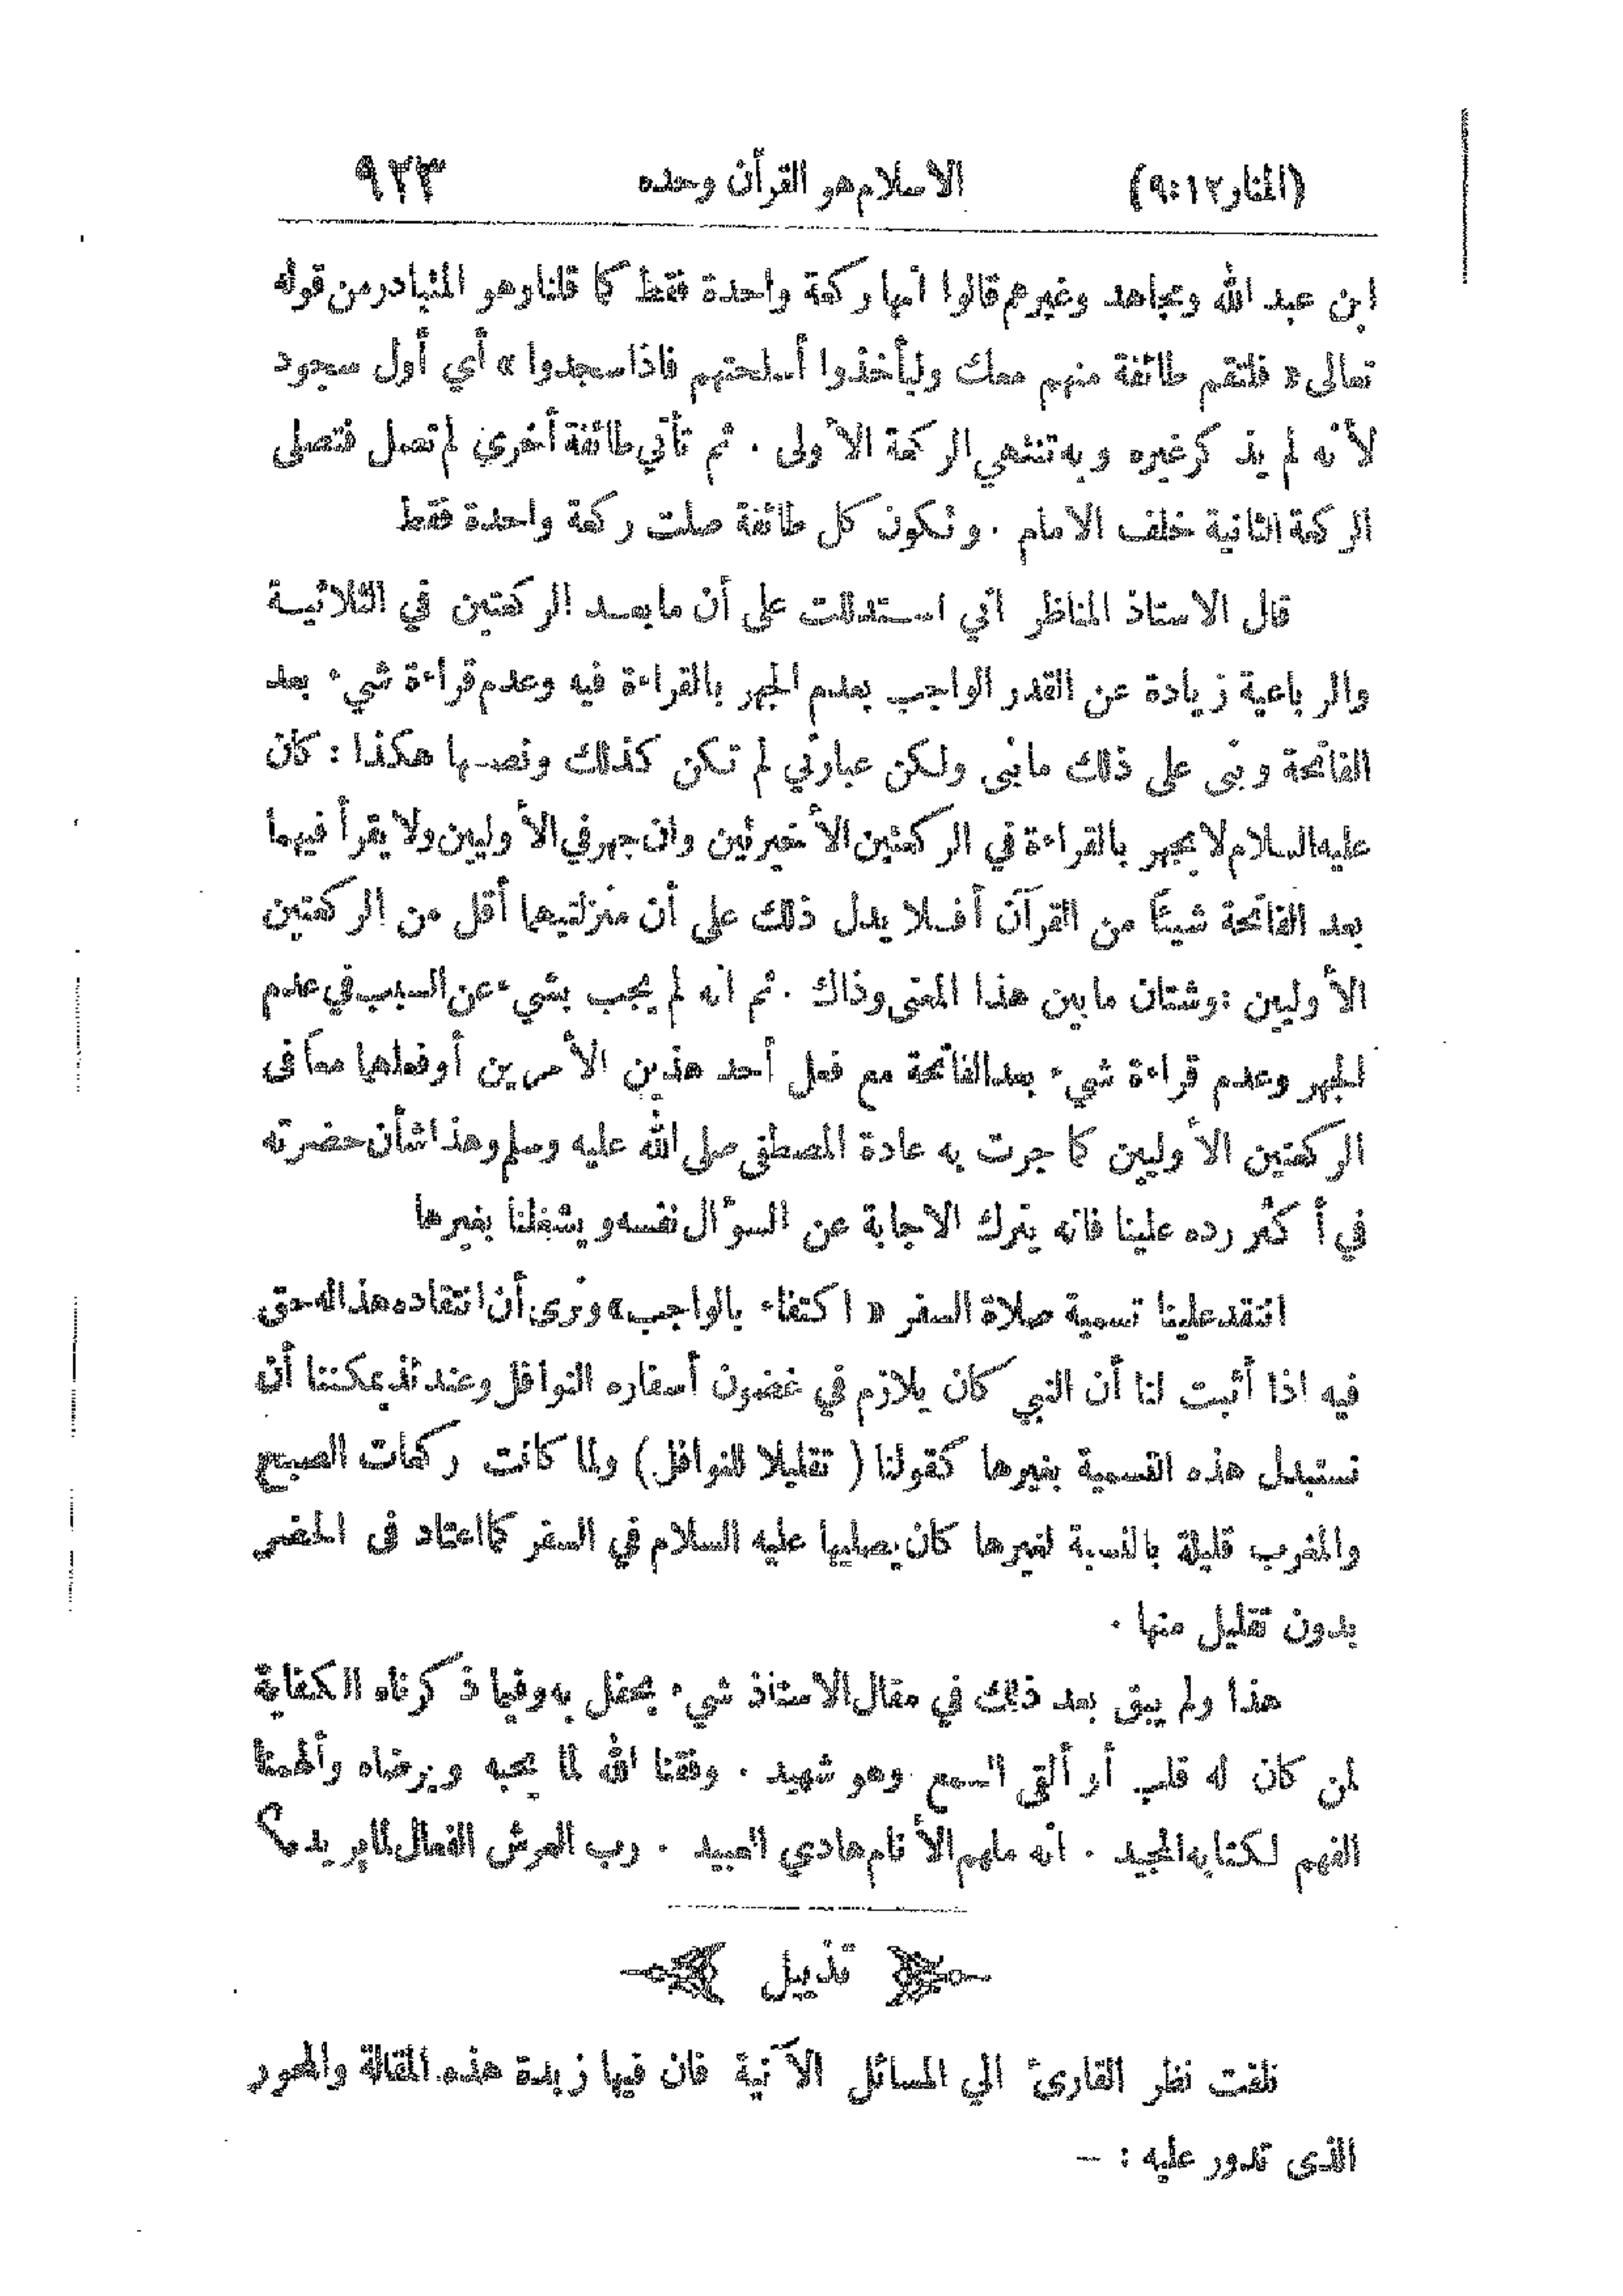 (المنار ١٢:٩) الاسلام هو القرآن وحده ٩٢٣
ابن عبد الله ومجاهد وغيرهم قالوا انها ركعة واحدة فقط كما قلنا وهو المتبادر من قوله
تعالى « فلتقم طائفة منهم معك وليأخذوا أسلحتهم فاذا سجدوا » أي أول سجود
لأنه لم يذكر غيره وبه تنتهي الركعة الأولى . ثم تأتي طائفة أخري لم تصل فتصلى
الركعة الثانية خلف الامام . وتكون كل طائفة صلت ركعة واحدة فقط
قال الاستاذ المناظر اني استدللت على أن ما بعد الركعتين في الثلاثية
والرباعية زيادة عن القدر الواجب بعدم الجهر بالقراءة فيه وعدم قراءة شيء بعد
الفاتحة وبنى على ذلك مابنى ولكن عبارتي لم تكن كذلك ونصها هكذا : كان
عليه السلام لا يجهر بالقراءة في الركعتين الأخيرتين وان جهر في الأوليين ولا يقرأ فيهما
بعد الفاتحة شيئاً من القرآن أفلا يدل ذلك على أن منزلتيهما أقل من الركعتين
الأوليين : وشتان مابين هذا المعنى وذاك . ثم انه لم يجب بشيء عن السبب في عدم
الجهر وعدم قراءة شيء بعد الفاتحة مع فعل أحد هذين الأمرين أو فعلهما معاً فى
الركعتين الأوليين كما جرت به عادة المصطفى صلى الله عليه وسلم وهذا شأن حضرته
في أكثر رده علينا فانه يترك الاجابة عن السؤال نفسه ويشغلنا بغيرها
انتقد علينا تسمية صلاة السفر « اكتفاء بالواجب » ونرى أن انتقاده هذا له حق
فيه اذا أثبت لنا أن النبي كان يلازم في غضون أسفاره النوافل وعندئذ يمكننا أن
نستبدل هذه التسمية بغيرها كقولنا ( تقليلا للنوافل ) ولما كانت ركعات الصبح
والمغرب قليلة بالنسبة لغيرها كان يصليها عليه السلام في السفر كما اعتاد فى الحضر
بدون تقليل منها .
هذا ولم يبق بعد ذلك في مقال الاستاذ شيء يحفل به وفيما ذكرناه الكفاية
لمن كان له قلب أو ألقى السمع وهو شهيد . وفقنا الله لما يحبه ويرضاه وألهمنا
الفهم لكتابه المجيد . انه ملهم الأنام هادي العبيد . رب العرش الفعال لما يريد م؟
تذييل
نلفت نظر القارئ الي المسائل الآتية فان فيها زبدة هذه المقالة والمحور
الذى تدور عليه : –